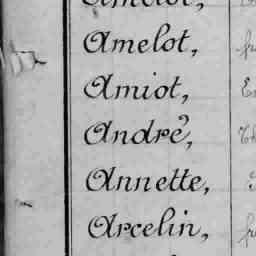 Amelot,
Amiot,
André,
Annette,
Arcelin,